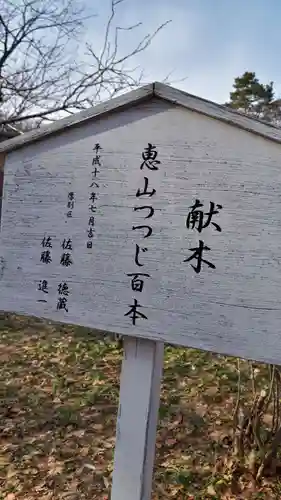 献木
恵山つつじ百本
平成十八年七月吉日
厚別区
佐藤 徳蔵
佐藤 進一